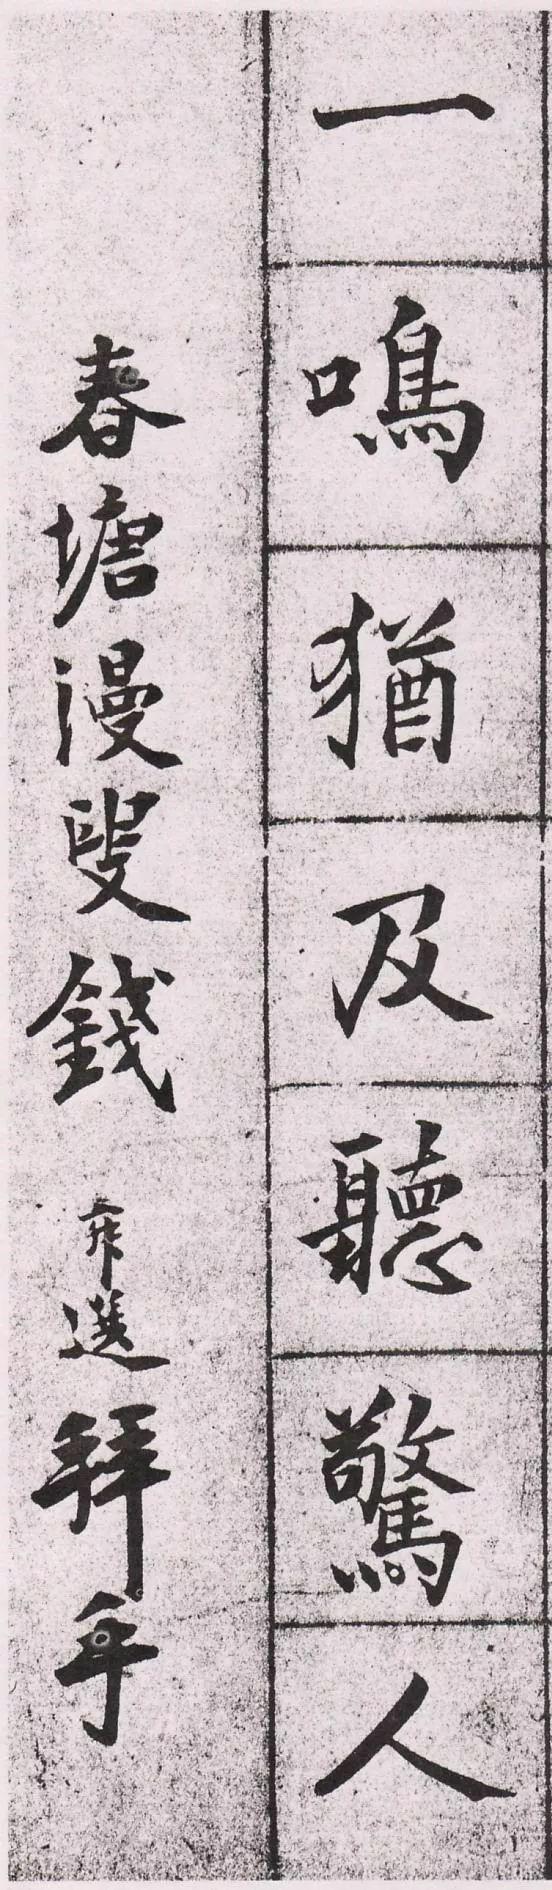 一鳴猶及聽驚人
春塘漫叟錢選拜手